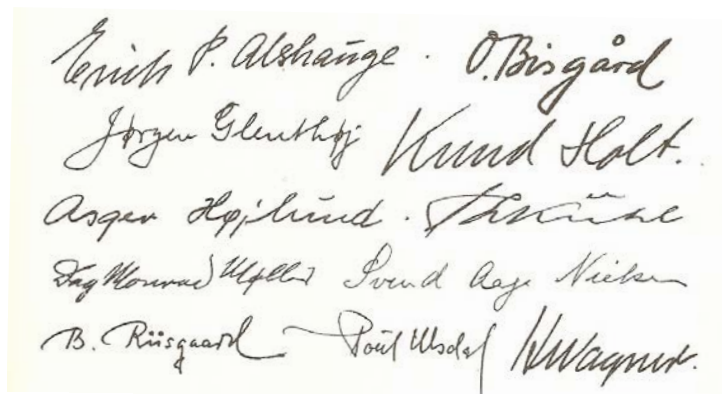 Erich P. Alshauge. O. Bisgård
Jørgen Glenthøj Knud Holt.
Asger Højlund. Th Kühl
Dag Monrad Møller Svend Aage Nielsen
B. Riisgaard Poul Ulsdal H Wagner.